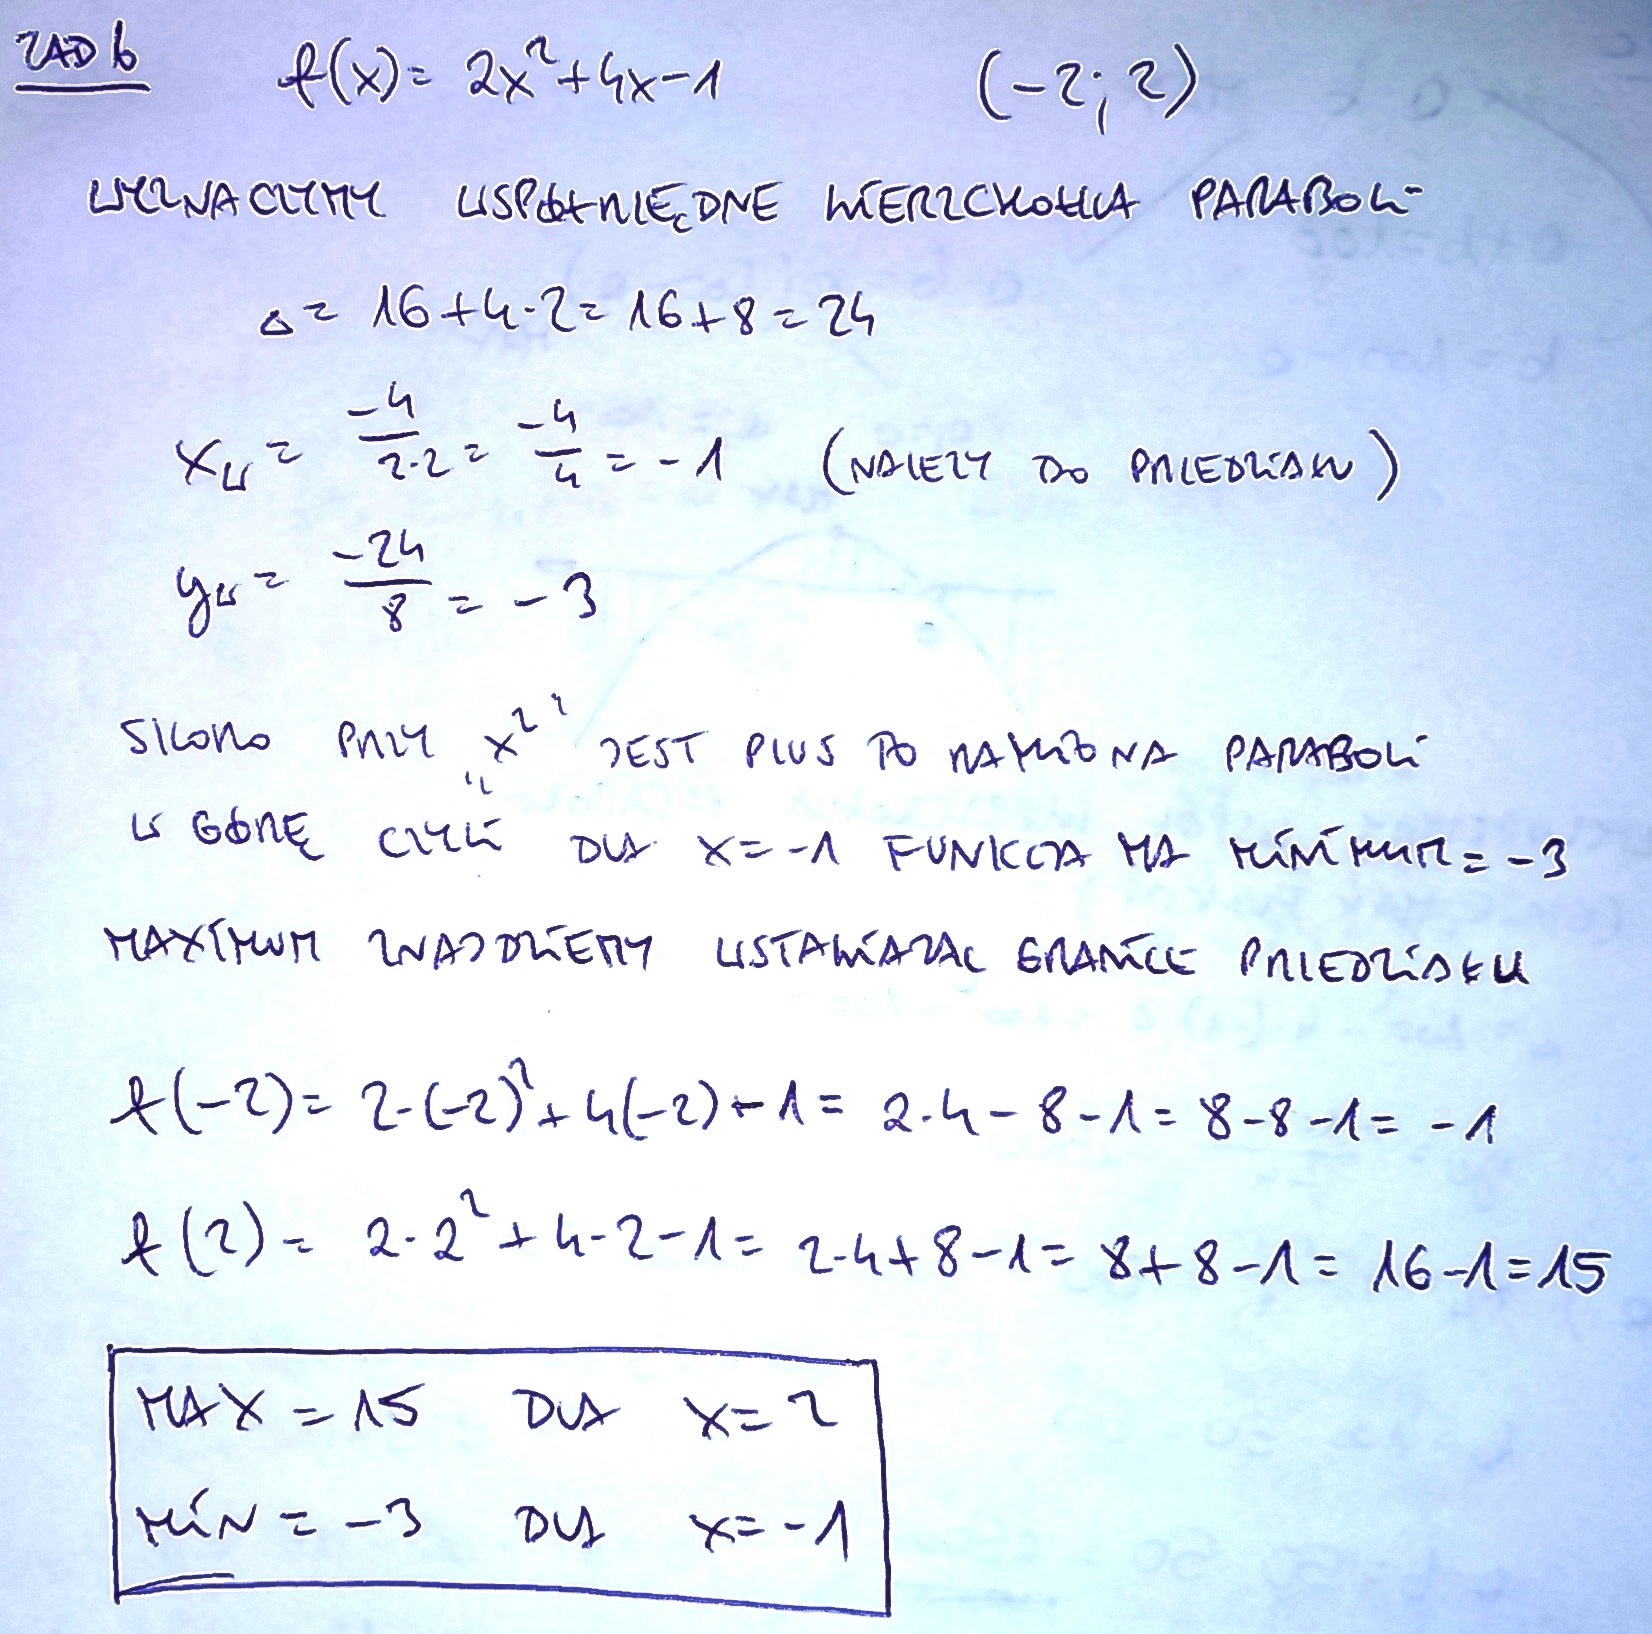 ZAD 6 f(x)= 2x²+4x-1 (-2; 2)
WYZNACZYMY WSPÓŁRZĘDNE WIERZCHOŁKA PARABOLI
Δ= 16+4·2= 16+8=24
x_w= -4/2·2= -4/4=-1 (NALEZY DO PRZEDZIAŁU)
y_w= -24/8= -3
SKORO PRZY „x²" JEST PLUS TO RAMIONA PARABOLI
W GÓRĘ CZYLI DLA X=-1 FUNKCJA MA MINIMUM=-3
MAXIMUM ZNAJDZIEMY WSTAWIAJAC GRANICE PRZEDZIAŁU
f(-2)= 2·(-2)²+4(-2)-1= 2·4-8-1= 8-8-1= -1
f(2)= 2·2²+4·2-1= 2·4+8-1= 8+8-1= 16-1=15
MAX =15 DLA X=2
MIN = -3 DLA X=-1